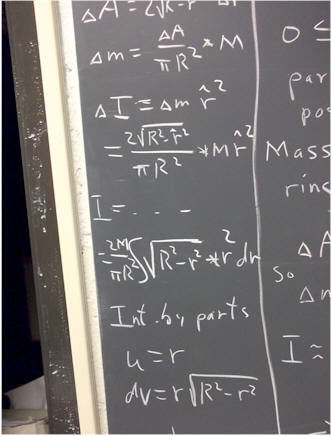 ΔA = 2√R²-r̂² Δr
Δm = ΔA / πR² * M
ΔI ≡ Δm r̂²
= 2√R²-r̂² / πR² * M r̂²
I = - - - -
= 2M / πR² ∫ √R²-r² * r² dr
Int. by parts
u = r
dv = r √R²-r²
0 ≤
par
po
Mass
rin
ΔA
So
Δm
I ≈